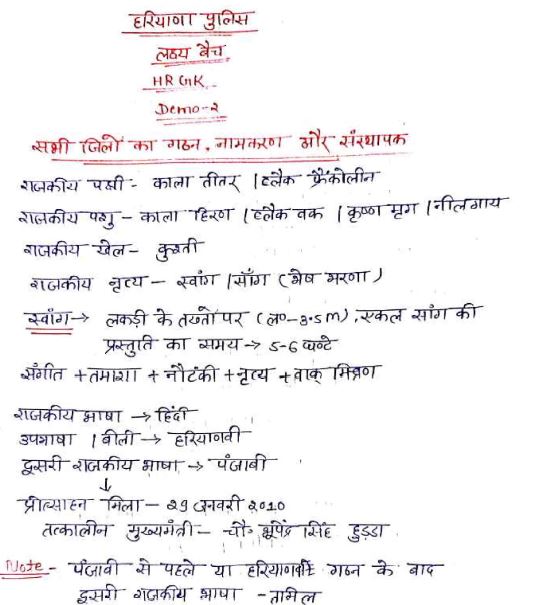 हरियाणा पुलिस
लक्ष्य बैच
HR GK
Demo-2
सभी जिलों का गठन, नामकरण और संस्थापक
राजकीय पक्षी - काला तीतर / ब्लैक फ्रैंकोलीन
राजकीय पशु - काला हिरण / ब्लैक बक / कृष्ण मृग / नीलगाय
राजकीय खेल - कुश्ती
राजकीय नृत्य - स्वांग / साँग (भेष भरणा)
स्वांग → लकड़ी के तख्तों पर (ल० - 3.5m), एकल सांग की
प्रस्तुति का समय → 5-6 घण्टे
संगीत + तमाशा + नौटंकी + नृत्य + वाक् मिश्रण
राजकीय भाषा → हिंदी
उपभाषा / बोली → हरियाणवी
दूसरी राजकीय भाषा → पंजाबी
↓
प्रोत्साहन मिला - 29 जनवरी 2010
तत्कालीन मुख्यमंत्री - चौ० भूपेंद्र सिंह हुड्डा
Note - पंजाबी से पहले या हरियाणा के गठन के बाद
दूसरी राजकीय भाषा - तमिल